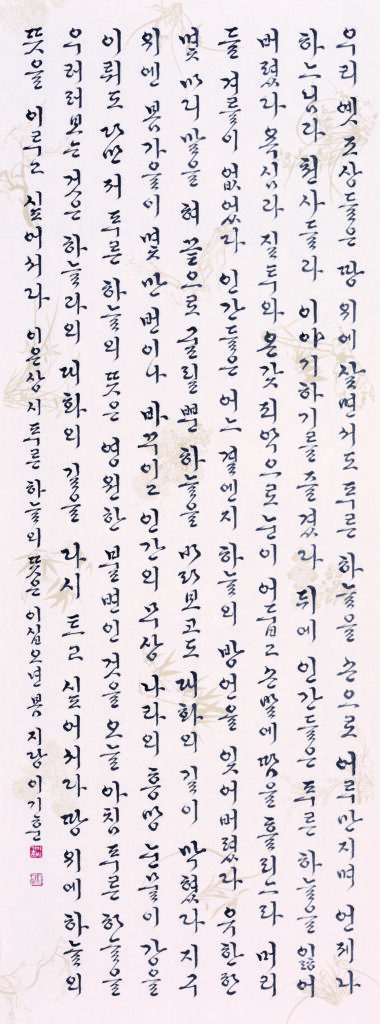 우리 옛 조상들은 땅 위에 살면서도 푸른 하늘을 손으로 어루만지며 언제나
하느님과 천사들과 이야기하기를 즐겼다 뒤에 인간들은 푸른 하늘을 잃어
버렸다 욕심과 질투와 온갖 죄악으로 눈이 어둡고 손발에 땀을 흘리느라 머리
들 겨를이 없었다 인간들은 어느 결엔지 하늘의 방언을 잊어버렸다 유한한
몇 마디 말을 혀 끝으로 굴릴 뿐 하늘을 바라보고도 대화의 길이 막혔다 지구
위엔 봄가을이 몇 만 번이나 바뀌고 인간의 무상 나라의 흥망 눈물이 강을
이뤄도 다만 저 푸른 하늘의 뜻은 영원한 불변인 것을 오늘 아침 푸른 하늘을
우러러보는 것은 하늘과의 대화의 길을 다시 트고 싶어서라 땅 위에 하늘의
뜻을 이루고 싶어서라 이은상 시 푸른 하늘의 뜻은 이십오년 봄 지랑 이기훈